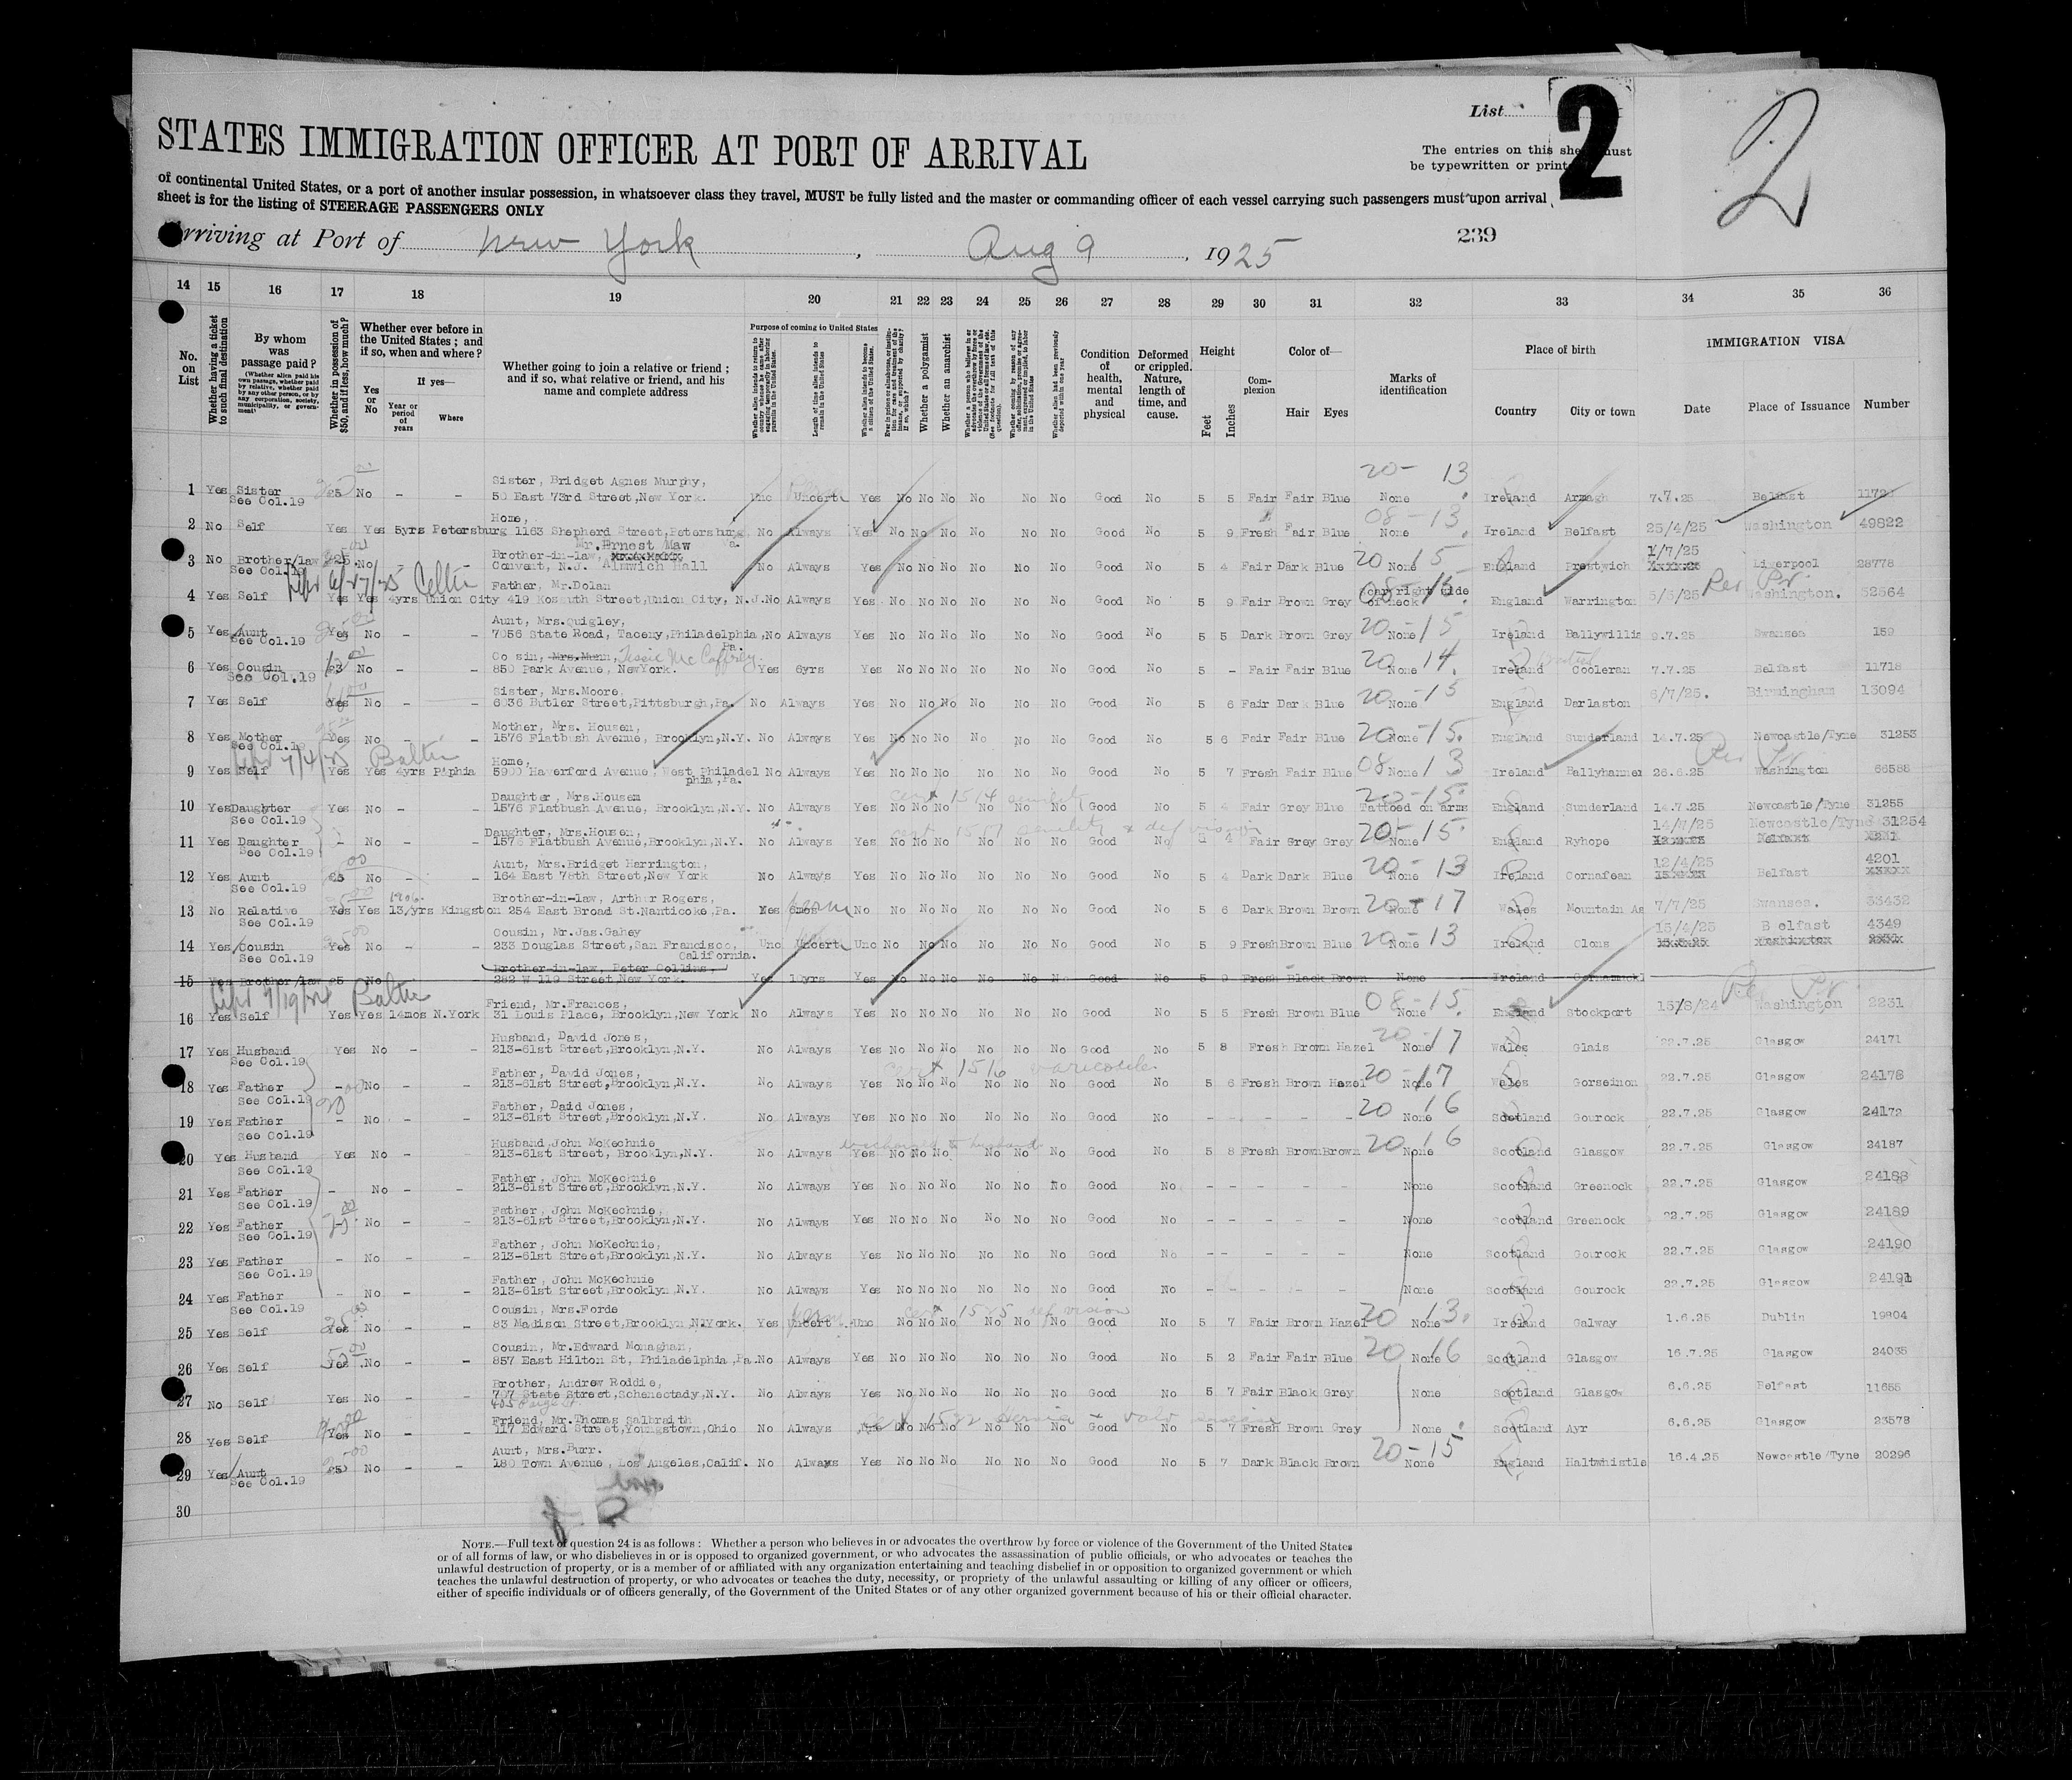 List 2
2
STATES IMMIGRATION OFFICER AT PORT OF ARRIVAL
The entries on this sheet must
be typewritten or print
of continental United States, or a port of another insular possession, in whatsoever class they travel, MUST be fully listed and the master or commanding officer of each vessel carrying such passengers must upon arrival
sheet is for the listing of STEERAGE PASSENGERS ONLY
rriving at Port of New York, Aug 9, 1925
239
14 15 16 17 18 19 20 21 22 23 24 25 26 27 28 29 30 31 32 33 34 35 36
No. on List
Whether having a ticket to such final destination
By whom was passage paid?
(Whether alien paid his own passage, whether paid by relative, whether paid by any other person, or by any corporation, society, municipality, or government)
Whether in possession of $50, and if less, how much?
Whether ever before in the United States; and if so, when and where?
Yes or No
If yes—
Year or period of years
Where
Whether going to join a relative or friend; and if so, what relative or friend, and his name and complete address
Purpose of coming to United States
Length of time alien intends to remain in the United States
Whether alien intends to become a citizen of the United States.
Whether a polygamist
Whether an anarchist
Condition of health, mental and physical
Deformed or crippled. Nature, length of time, and cause.
Height
Feet
Inches
Complexion
Color of—
Hair
Eyes
Marks of identification
Place of birth
Country
City or town
IMMIGRATION VISA
Date
Place of Issuance
Number
1 Yes Sister See Col.19 25 No - - Sister, Bridget Agnes Murphy, 50 East 73rd Street,New York. Unc Uncertn Yes No No No No No No Good No 5 5 Fair Fair Blue None 20- 13 Ireland Armagh 7.7.25 Belfast
2 No Self Yes Yes 5yrs Petersburg Home, 1163 Shepherd Street,Petersburg Pa. No Always Yes No No No No No No Good No 5 9 Fresh Fair Blue None 08-13 Ireland Belfast 25/4/25 Washington 49822
3 No Brother/law See Col.19 25. No Brother-in-law, Mr.Ernest Maw Convent, N.J. Alnwich Hall No Always Yes No No No No No No Good No 5 4 Fair Dark Blue None 20 15 England Prestwich 1/7/25 Liverpool 28778
4 Yes Self Yes Yes 4yrs Union City Father, Mr.Dolan 419 Kosmuth Street,Union City, N.J. No Always Yes No No No No No No Good No 5 9 Fair Brown Grey right side of neck 08-15 England Warrington 5/5/25 Washington. 52564
5 Yes Aunt See Col.19 Yes No - - Aunt, Mrs.quigley, 7056 State Road, Tacony,Philadelphia,Pa. No Always Yes No No No No No No Good No 5 5 Dark Brown Grey None 20-15 Ireland Ballywillis 9.7.25 Swansea 159
6 Yes Cousin See Col.19 No - - Co sin, Mrs.Munn, Jessie McCaffrey 850 Park Avenue, NewYork. Yes 6yrs Yes No No No No No No Good No 5 - Fair Fair Blue None 20 14. Ireland Cooleran 7.7.25 Belfast 11718
7 Yes Self Yes No - - Sister, Mrs.Moore. 6036 Butler Street,Pittsburgh,Pa. No Always Yes No No No No No No Good No 5 6 Fair Dark Blue None 20-15 England Darlaston 6/7/25. Birmingham 13094
8 Yes Mother See Col.19 Yes No - - Mother, Mrs. Housen, 1576 Flatbush Avenue, Brooklyn,N.Y. No Always Yes No No No No No No Good No 5 6 Fair Fair Blue None 20-15. England Sunderland 14.7.25 Newcastle/Tyne 31253
9 Yes Self Yes Yes 4yrs P'phia Home, 5900 Haverford Avenue, West Philadel phia,Pa. No Always Yes No No No No No No Good No 5 7 Fresh Fair Blue None 08 13 Ireland 26.6.25 Washington 66588
10 Yes Daughter See Col.19 Yes No - - Daughter, Mrs.Housen 1576 Flatbush Avenue, Brooklyn,N.Y. No Always Yes No No No No No No Good No 5 4 Fair Grey Blue Tattoed on arms 20-15 England Sunderland 14.7.25 Newcastle/Tyne 31255
11 Yes Daughter See Col.19 - No - - Daughter, Mrs.Housen, 1576 Flatbush Avenue,Brooklyn,N.Y. No Always Yes No No No No No No Good No 5 4 Fair Grey Grey None 20-15 England Ryhope 14/7/25 Newcastle/Tyne 31254
12 Yes Aunt See Col.19 25 No - - Aunt, Mrs.Bridget Harrington, 164 East 78th Street,New York No Always Yes No No No No No No Good No 5 4 Dark Dark Blue None 20-13 Ireland Cornafean 12/4/25 Belfast 4201
13 No Relative See Col.19 Yes Yes 1906 13/yrs Kingston Brother-in-law, Arthur Rogers, 254 East Broad St.Nanticoke,Pa. Yes 6mos perm No No No No No No No Good No 5 6 Dark Brown Brown None 20-17 Wales Mountain As 7/7/25 Swansea. 33432
14 Yes Cousin See Col.19 Yes No - - Cousin, Mr.Jas.Gahey 233 Douglas Street,San Francisco, California. Unc Uncertn Unc No No No No No No Good No 5 9 Fresh Brown Blue None 20-13 Ireland Clons 15/4/25 Belfast 4349
15 Yes Brother/law 25 No Brother-in-law, Peter Collins, 282 W 119 Street,New York. Yes 10yrs Yes No No No No No No Good No 5 9 Fresh Black Brown None Ireland
16 Yes Self Yes Yes 14mos N.York Friend, Mr.Frances, 31 Louis Place, Brooklyn,New York No Always Yes No No No No No No Good No 5 5 Fresh Brown Blue None 08-15. England Stockport 15/8/24 Washington 2231
17 Yes Husband See Col.19 Yes No - - Husband, David Jones, 213-61st Street,Brooklyn,N.Y. No Always Yes No No No No No No Good No 5 8 Fresh Brown Hazel None 20-17 Wales Glais 22.7.25 Glasgow 24171
18 Yes Father See Col.19 - No - - Father, David Jones, 213-61st Street,Brooklyn,N.Y. No Always Yes No No No No No No Good No 5 6 Fresh Brown Hazel None 20-17 Wales Gorseinon 22.7.25 Glasgow 24178
19 Yes Father See Col.19 - No - - Father, Daid Jones, 213-61st Street,Brooklyn,N.Y. No Always Yes No No No No No No Good No - - - - - None 20 16 Scotland Gourock 22.7.25 Glasgow 24172
20 Yes Husband See Col.19 Yes No - - Husband,John McKechnie 213-61st Street, Brooklyn,N.Y. No Always Yes No No No No No No Good No 5 8 Fresh Brown Brown None 20 16 Scotland Glasgow 22.7.25 Glasgow 24187
21 Yes Father See Col.19 - No - - Father, John McKechnie 213-61st Street,Brooklyn,N.Y. No Always Yes No No No No No No Good No - - - - - None Scotland Greenock 22.7.25 Glasgow 24188
22 Yes Father See Col.19 - No - - Father, John McKechnie, 213-61st Street,Brooklyn,N.Y. No Always Yes No No No No No No Good No - - - - - None Scotland Greenock 22.7.25 Glasgow 24189
23 Yes Father See Col.19 - No - - Father, John McKechnie, 213-61st Street,Brooklyn,N.Y. No Always Yes No No No No No No Good No - - - - - None Scotland Gourock 22.7.25 Glasgow 24190
24 Yes Father See Col.19 - No - - Father, John McKechnie 213-61st Street,Brooklyn,N.Y. No Always Yes No No No No No No Good No - - - - - None Scotland Gourock 22.7.25 Glasgow 24191
25 Yes Self Yes No - - Cousin, Mrs.Forde 83 Madison Street,Brooklyn,N.York. Yes Uncert. Unc No No No No No No Good No 5 7 Fair Brown Hazel None 20 13. Ireland Galway 1.6.25 Dublin 19804
26 Yes Self Yes No - - Cousin, Mr.Edward Monaghan, 857 East Hilton St, Philadelphia,Pa. No Always Yes No No No No No No Good No 5 2 Fair Fair Blue None 20 16 Scotland Glasgow 16.7.25 Glasgow 24035
27 No Self Yes No - - Brother, Andrew Roddie, 797 State Street,Schenectady,N.Y. 405 Paige St No Always Yes No No No No No No Good No 5 7 Fair Black Grey None Scotland Glasgow 6.6.25 Belfast 11655
28 Yes Self Yes No - - Friend, Mr.Thomas Galbraith 117 Edward Street,Youngstown,Ohio No Always No No No No No No Good No 5 7 Fresh Brown Grey None Scotland Ayr 6.6.25 Glasgow 23578
29 Yes Aunt See Col.19 25 No - - Aunt, Mrs.Burr. 180 Town Avenue, Los Angeles,Calif. No Always Yes No No No No No No Good No 5 7 Dark Black Brown None 20-15 England Haltwhistle 16.4.25 Newcastle/Tyne 20296
30
NOTE.—Full text of question 24 is as follows: Whether a person who believes in or advocates the overthrow by force or violence of the Government of the United States
or of all forms of law, or who disbelieves in or is opposed to organized government, or who advocates the assassination of public officials, or who advocates or teaches the
unlawful destruction of property, or is a member of or affiliated with any organization entertaining and teaching disbelief in or opposition to organized government or which
teaches the unlawful destruction of property, or who advocates or teaches the duty, necessity, or propriety of the unlawful assaulting or killing of any officer or officers,
either of specific individuals or of officers generally, of the Government of the United States or of any other organized government because of his or their official character.